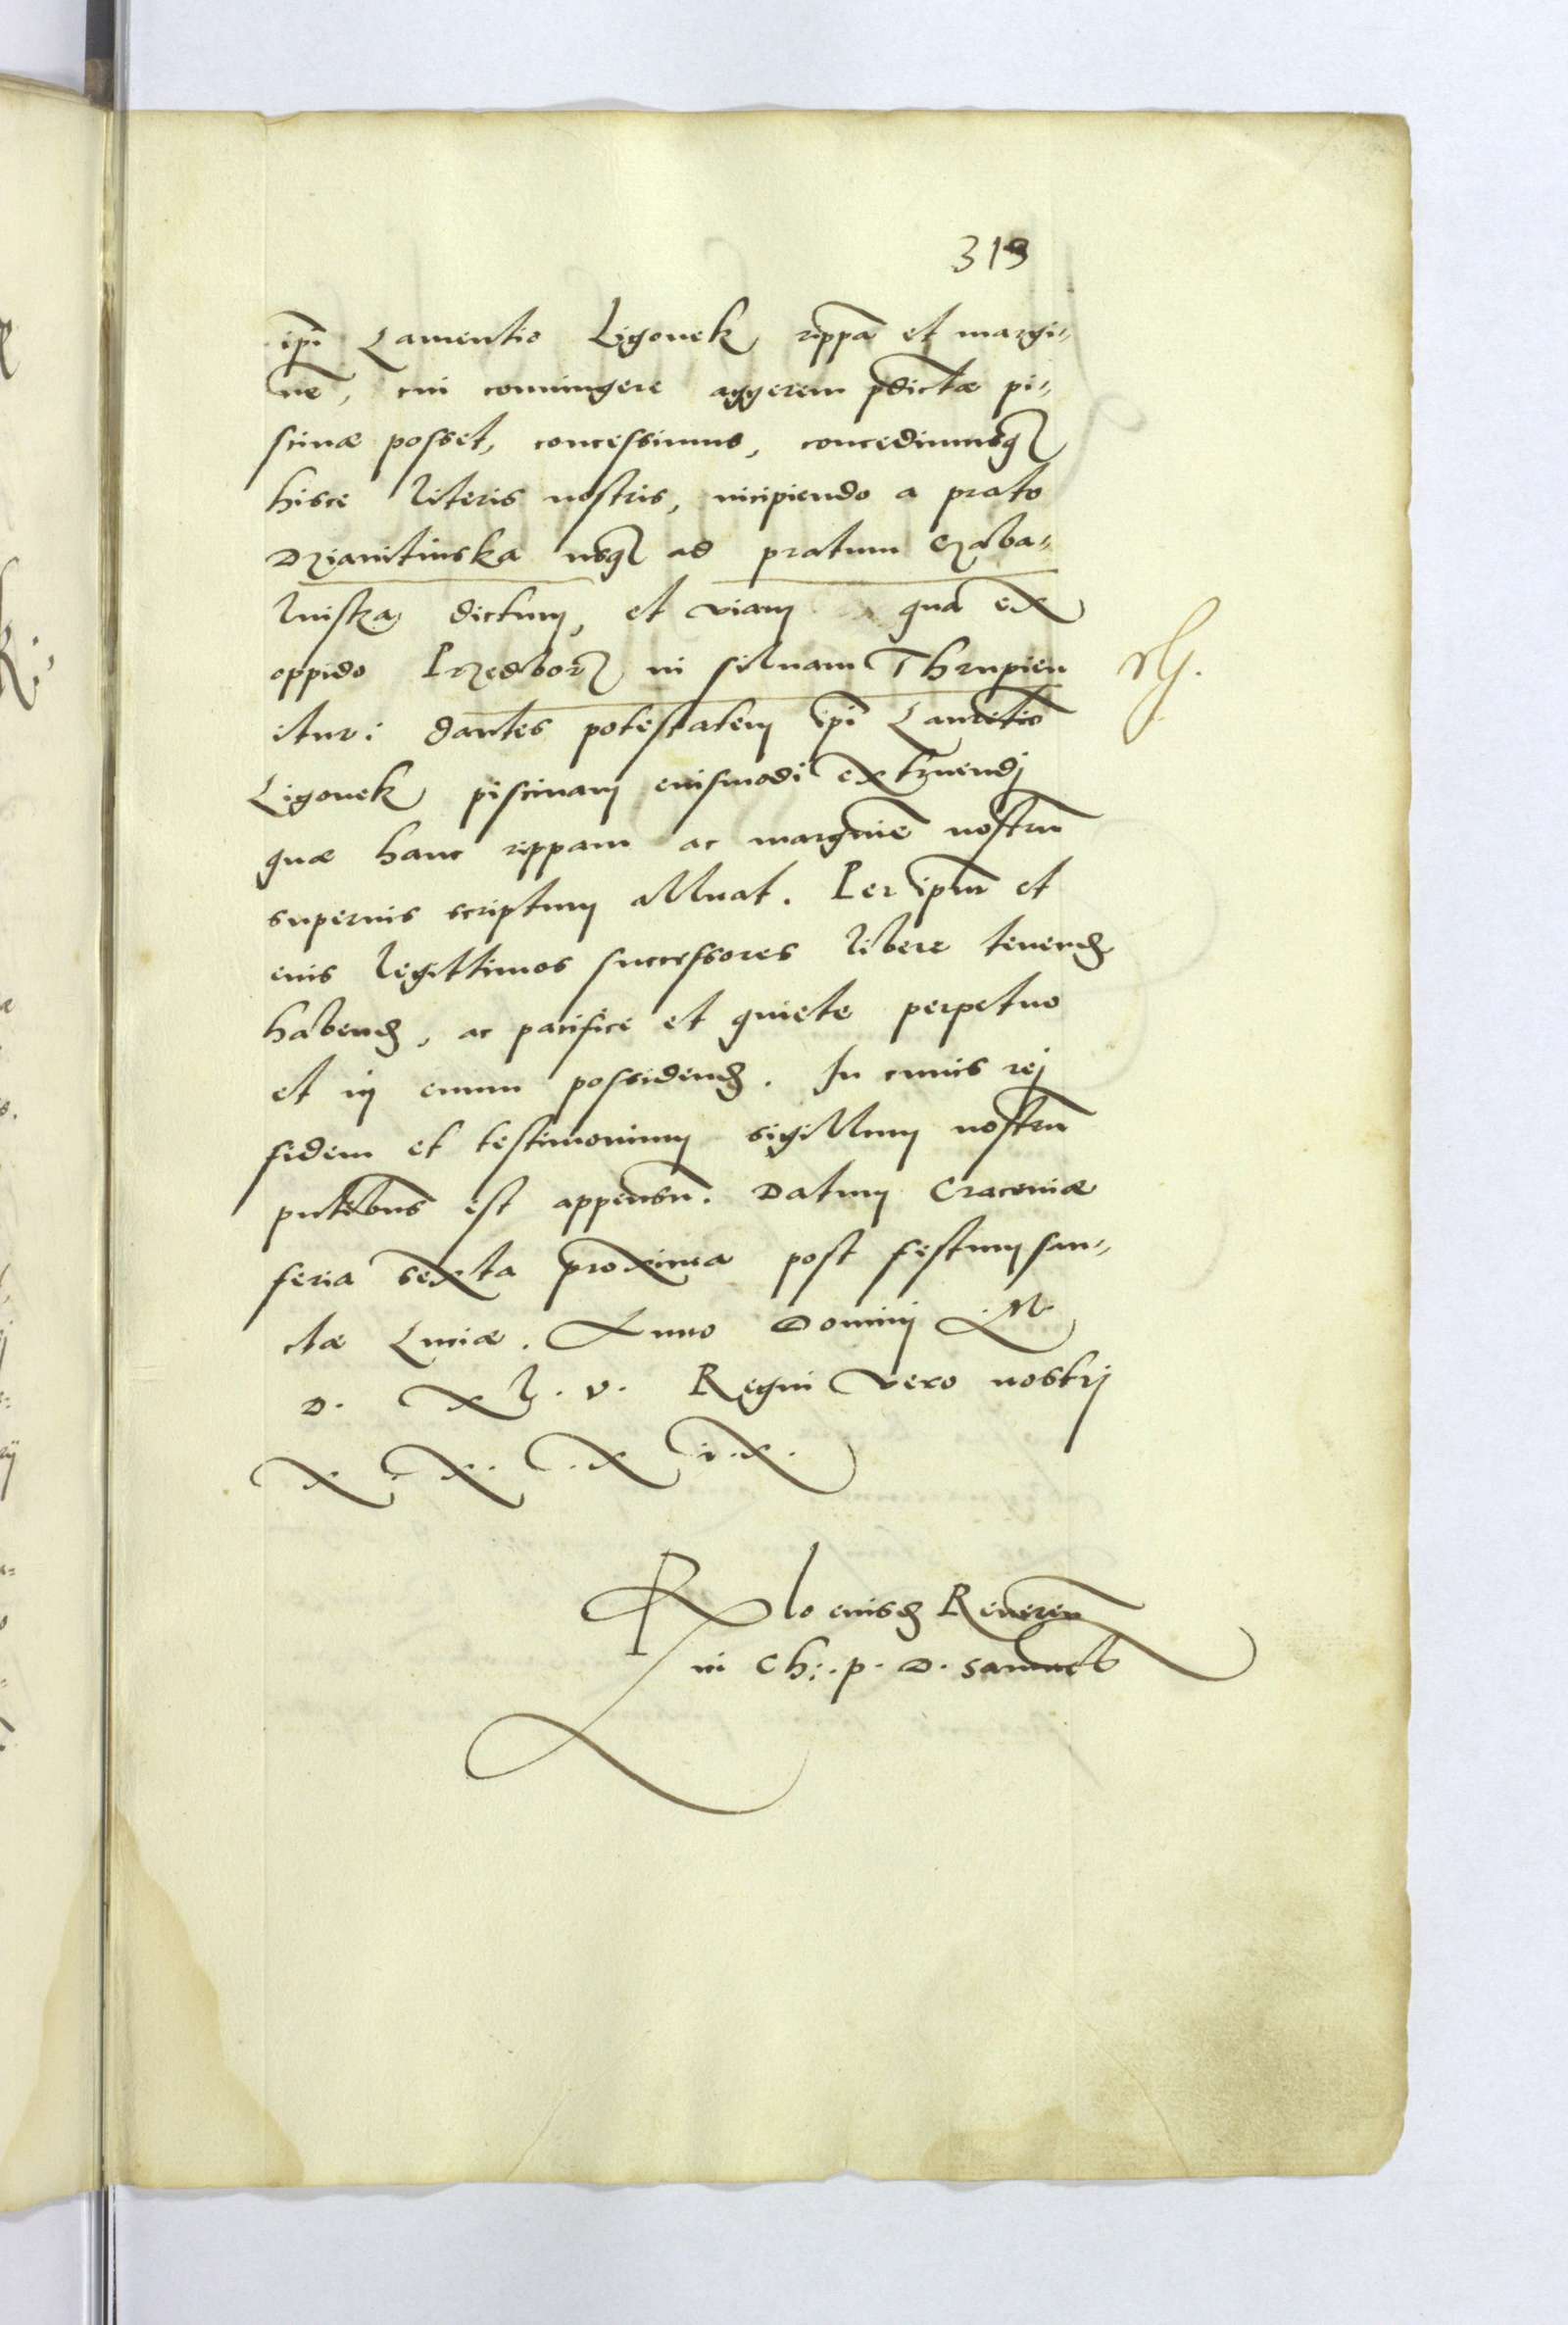 319
ipi Laurentio Ligonek rippã et margi-
nẽ, cui coniungere aggerem pdictæ pi-
scinæ posset, concessimus, concedimusq
hisce literis nostris, incipiendo a prato
Dzianitinska usq ad pratum Czaba-
luiska dictum, et viam qua ex
oppido Przedborz in siluam Thrupien
itur: dantes potestatem ipi Laurẽtio
Ligonek piscinam eiusmodi extruendj
quæ hanc rippam ac marginẽ nostrũ
superius scriptum alluat. Per ipm et
eius legittimos successores libere tenend
habend, ac pacifice et quiete perpetuo
et in euum possidend. In cuius rej
fidem et testimonium sigillum nostrũ
pntibus est appensũ. Datum Cracouiæ
feria sexta proxima post festum san-
ctæ Luciæ. Anno Dominj M.
D. XL. V. Regni vero nostrj
X. X. X I.X.
Rlo eiusd Reueren
in Ch: p. D. Samuel